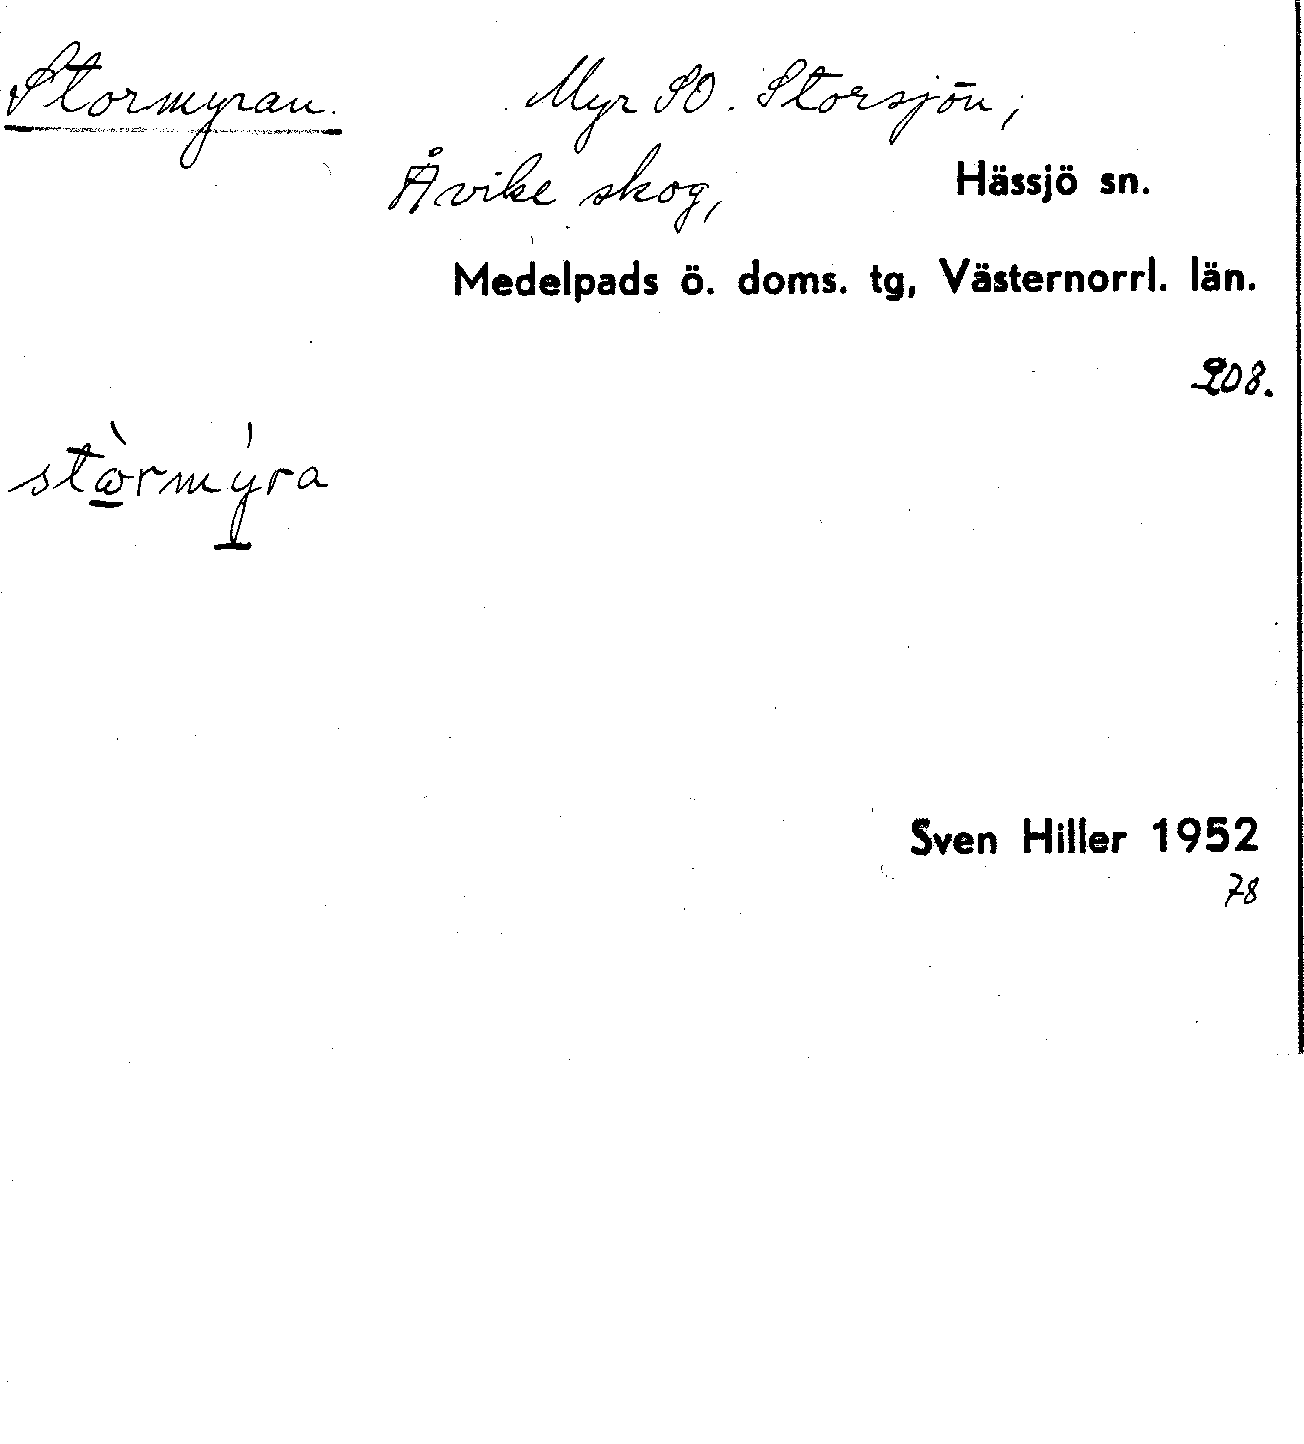 Stormyran. Myr SO. Storsjön,
Åvike skog, Hässjö sn.
Medelpads ö. doms. tg, Västernorrl. län.
208.
stὼrmýra
Sven Hiller 1952
78